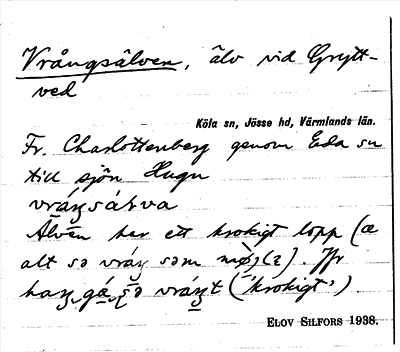 Vrångsälven, älv vid Grytt-
ved
Köla sn, Jösse hd, Värmlands län.
Fr. Charlottenberg genom Eda sn
till sjön Hugn
vráŋsáɽva
Älven har ett krokigt lopp (æ
alt sə vráŋ səm . Jfr
haŋ vráŋt ('krokigt')
ELOV SILFORS 1938.